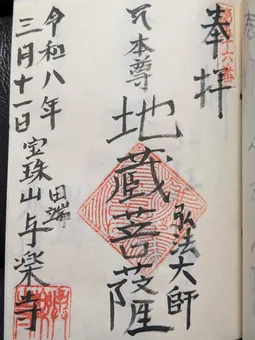 奉拝
本尊
地蔵菩薩
弘法大師
令和八年
三月十一日
田端
宝珠山与楽寺